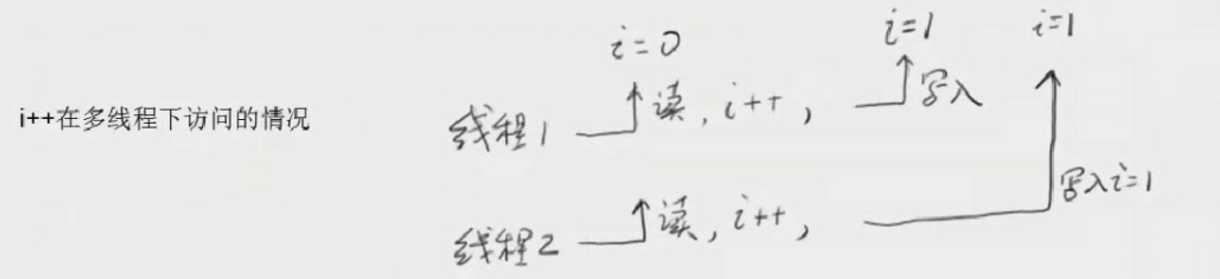 i=0 i=1 i=1
i++在多线程下访问的情况
线程1 读, i++, 写入
写入i=1
线程2 读, i++,